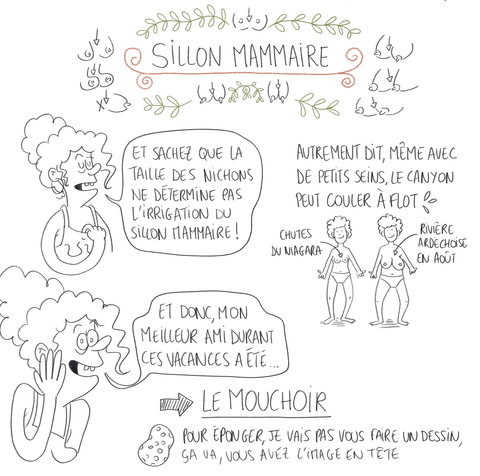 SILLON MAMMAIRE
ET SACHEZ QUE LA
TAILLE DES NICHONS
NE DÉTERMINE PAS
L'IRRIGATION DU
SILLON MAMMAIRE !
AUTREMENT DIT, MÊME AVEC
DE PETITS SEINS, LE CANYON
PEUT COULER À FLOT
CHUTES
DU NIAGARA
RIVIÈRE
ARDÉCHOISE
EN AOÛT
ET DONC, MON
MEILLEUR AMI DURANT
CES VACANCES A ÉTÉ...
LE MOUCHOIR
POUR ÉPONGER, JE VAIS PAS VOUS FAIRE UN DESSIN,
ÇA VA, VOUS AVEZ L'IMAGE EN TÊTE